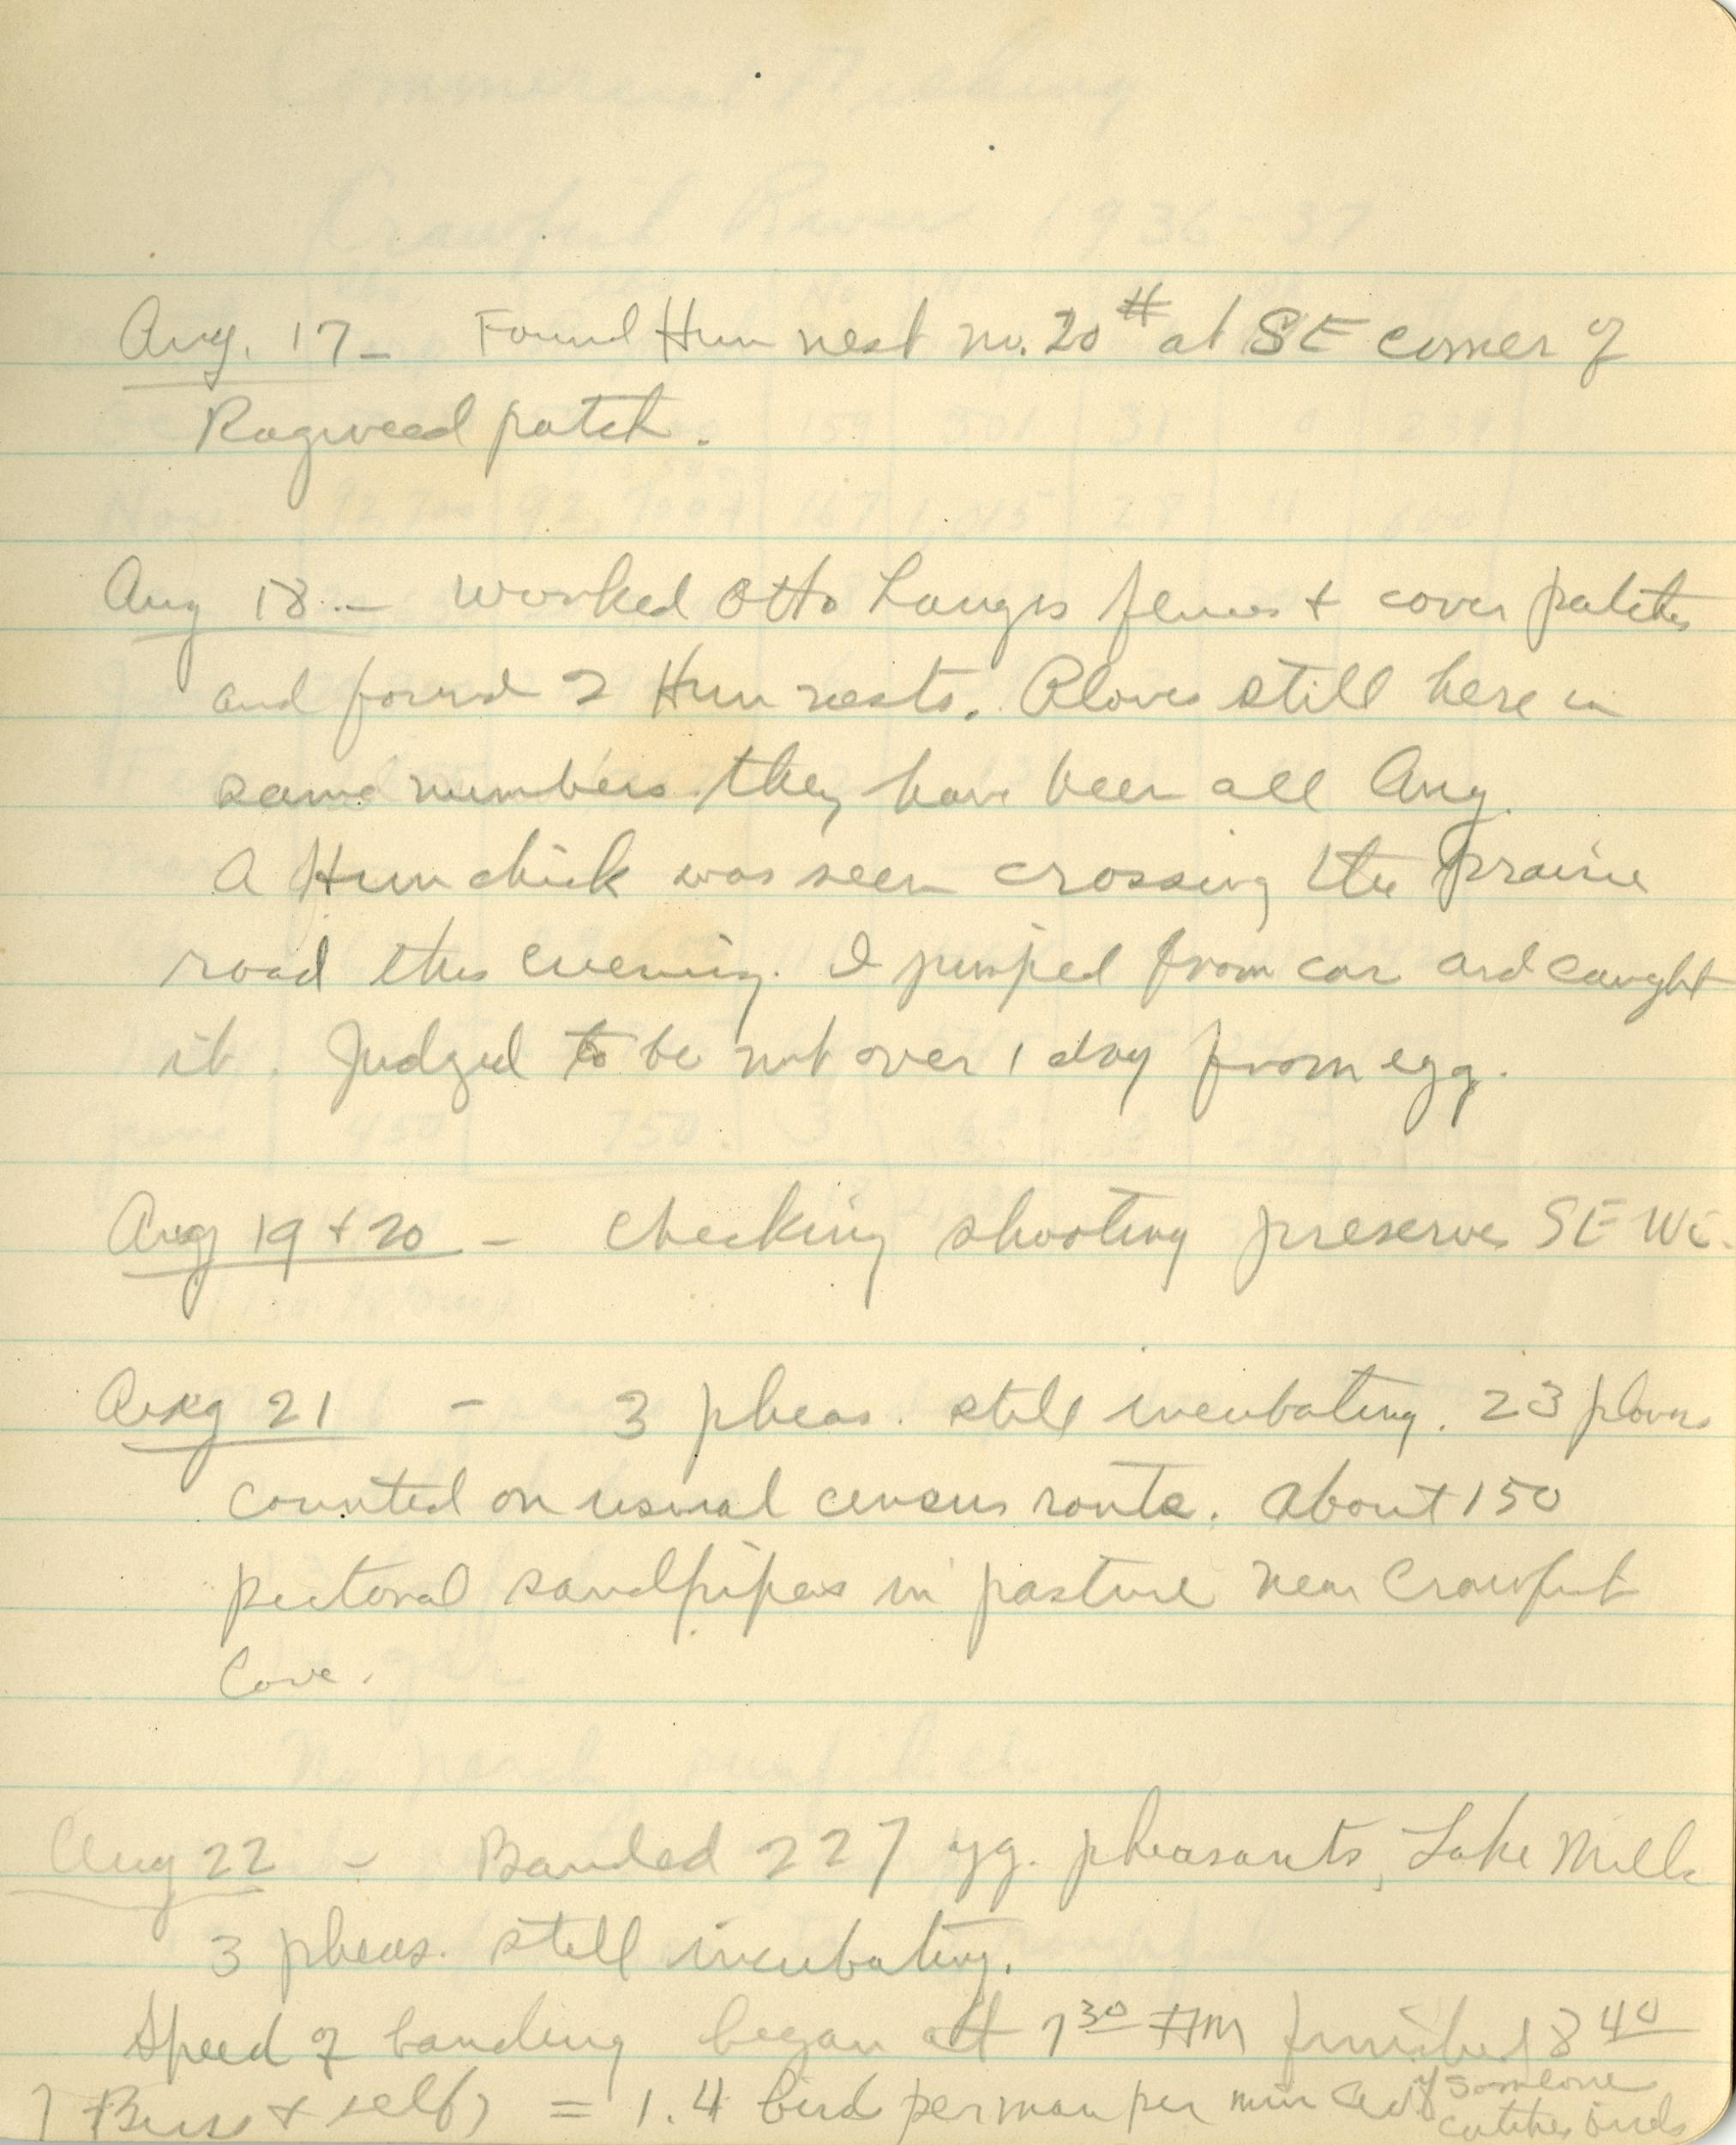 Aug. 17 - Found Hun nest no. 20 # at SE corner of
Ragweed patch.
Aug 18 - Worked Otto Langes fences + cover patches
and found 2 Hun nests. Plover still here in
same numbers they have been all Aug.
A Hun chick was seen crossing the Prairie
road this evening. I jumped from car and caught
it. Judged to be not over 1 day from egg.
Aug 19 + 20 - Checking shooting preserves SE Wi.
Aug 21 - 3 pheas. still incubating. 23 plovers
counted on usual census route. About 150
pectoral sandpipers in pasture near Crawfish
Cove.
Aug 22 - Banded 227 yg. pheasants, Lake Mills
3 pheas. still incubating.
Speed of banding began at 7 30 AM finished 8 40
(Buss + self) = 1.4 bird per man per min if someone
catches birds